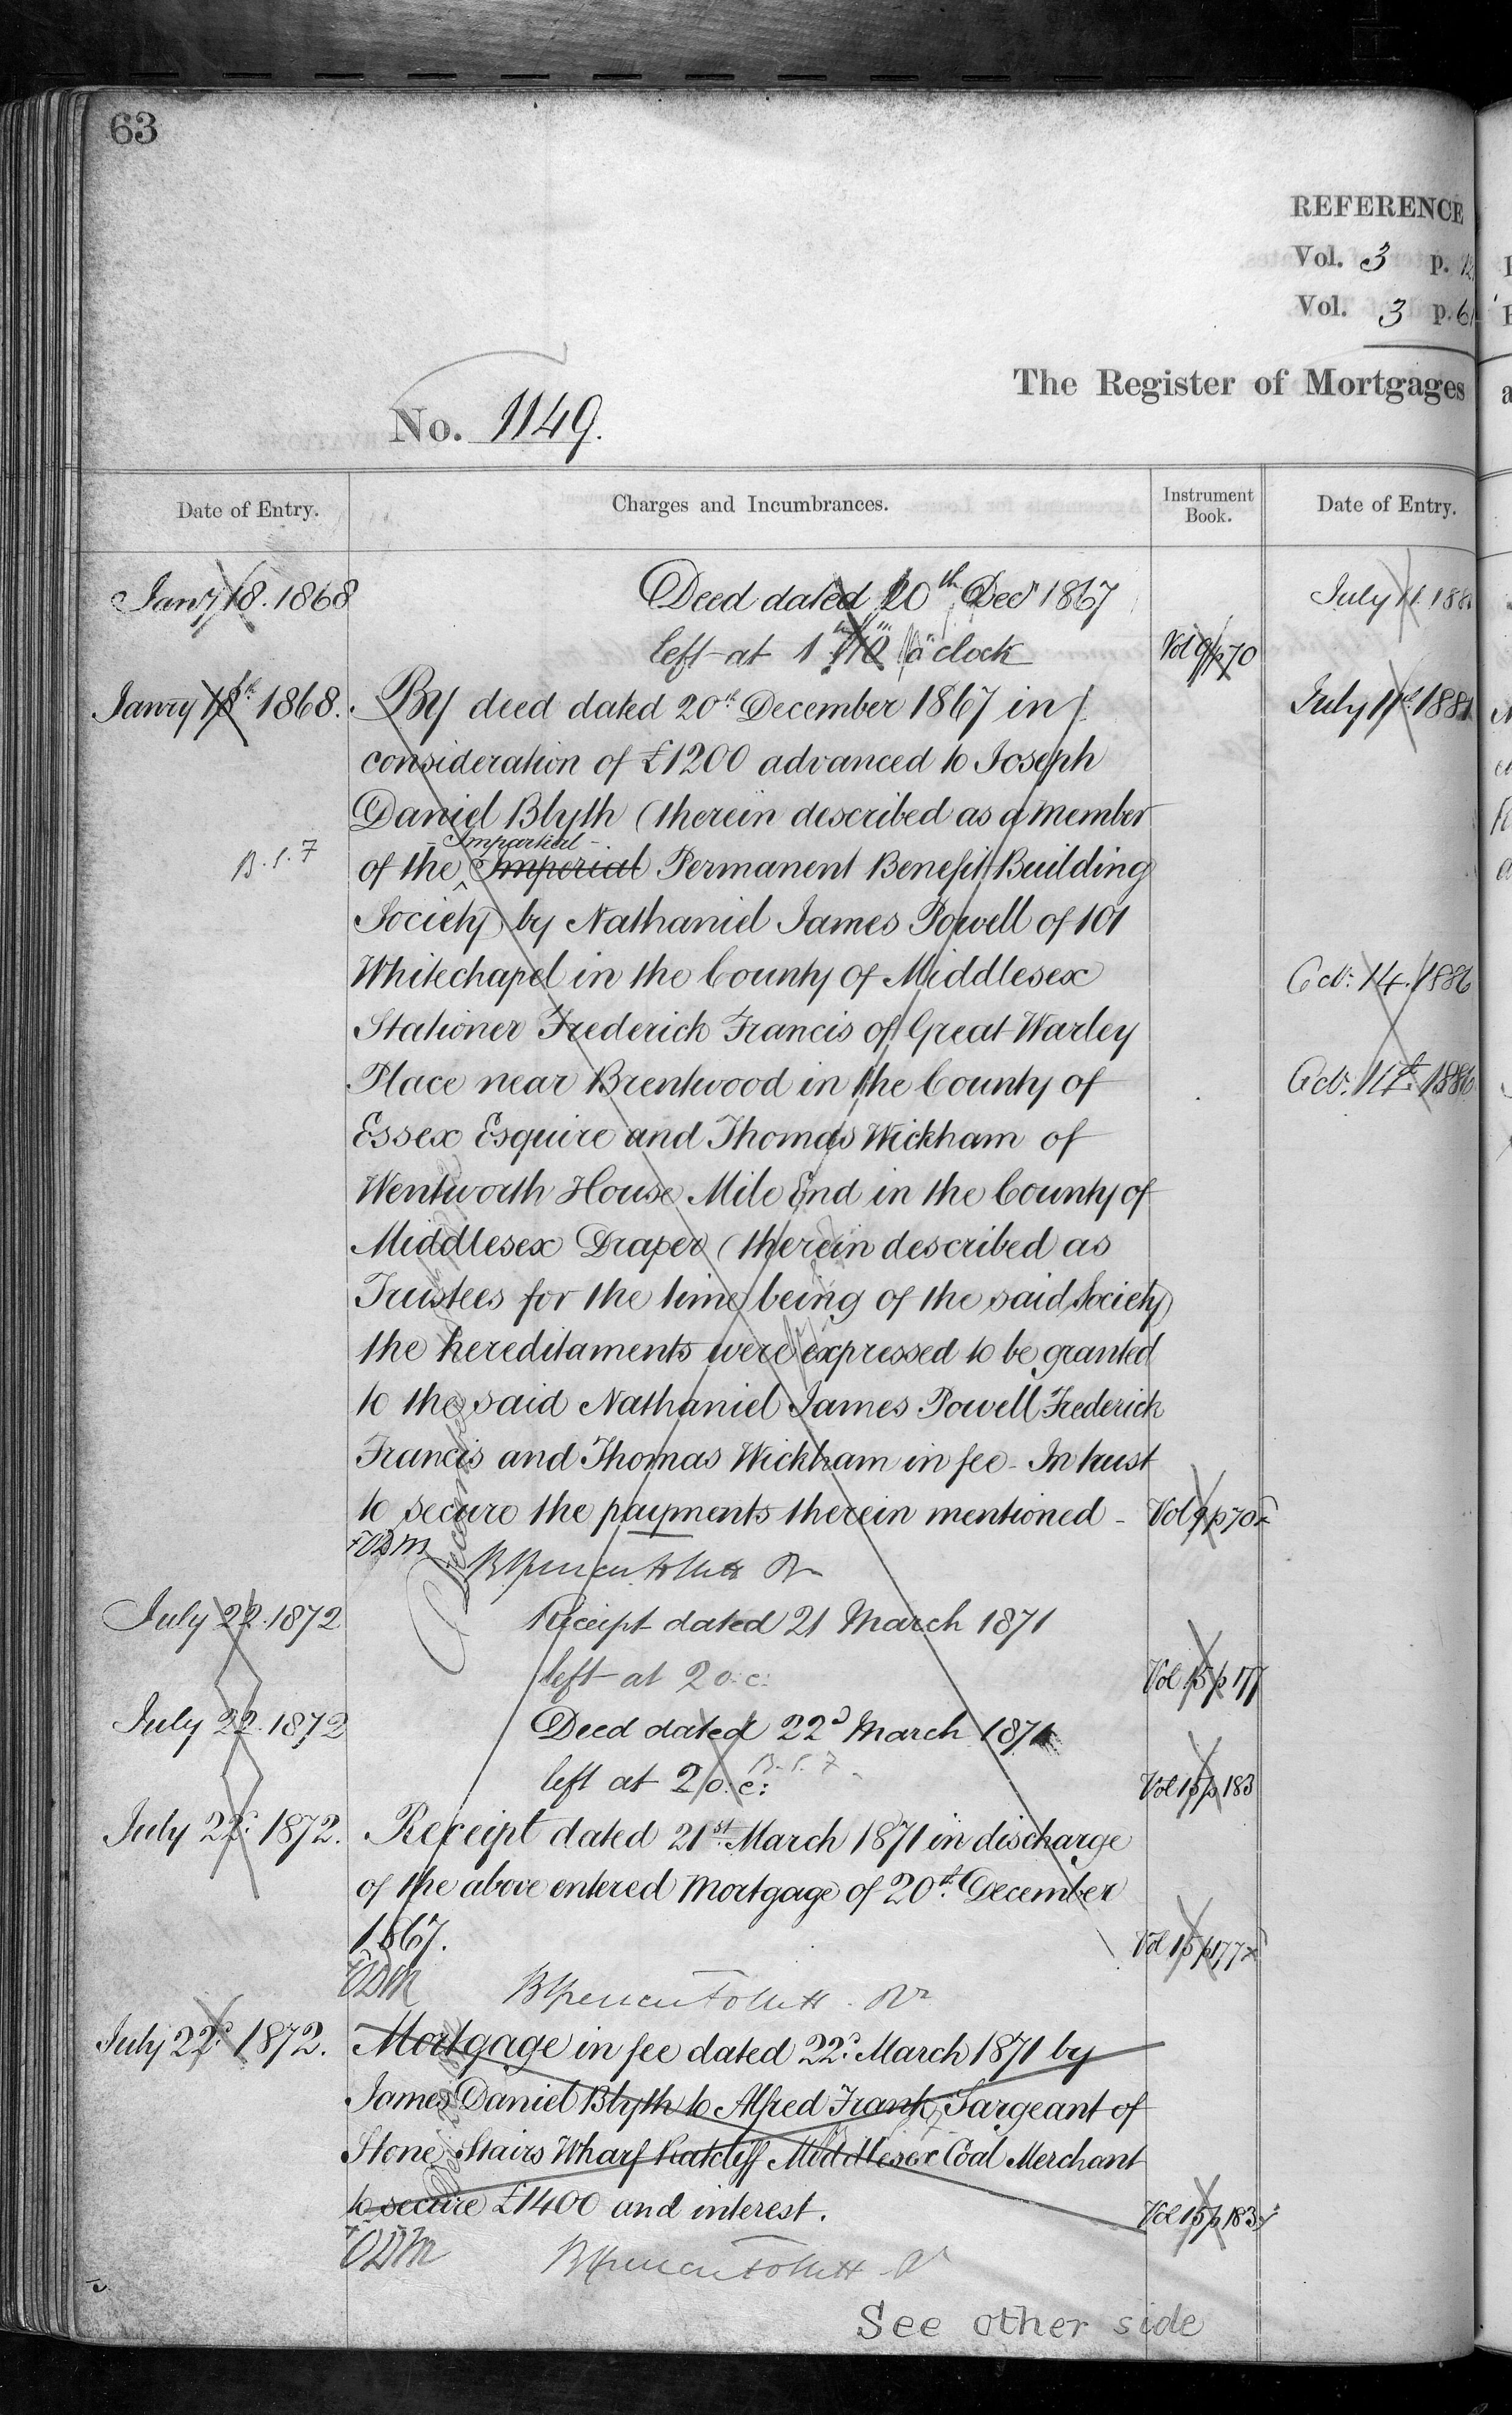 63
REFERENCE
Vol. 3 p.
Vol. 3 p. 6
The Register of Mortgages
No. 1149.
Date of Entry.
Charges and Incumbrances.
Instrument Book.
Date of Entry.
Jany 18. 1868
Deed dated 20th Decr 1867
July 11 188
left at 1 o'clock
Vol 9 p 70
Janry 18th 1868.
By deed dated 20th December 1867 in
July 11th 1881
consideration of £1200 advanced to Joseph
Daniel Blyth (therein described as a member
B.S.7
Impartial
of the Imperial Permanent Benefit Building
Society) by Nathaniel James Powell of 101
Whitechapel in the County of Middlesex
Oct: 14. 1886
Stationer Frederick Francis of Great Warley
Place near Brentwood in the County of
Oct: 14th 1886
Essex Esquire and Thomas Wickham of
Wentworth House Mile End in the County of
Middlesex Draper (therein described as
Trustees for the time being of the said Society)
the hereditaments were expressed to be granted
to the said Nathaniel James Powell Frederick
Francis and Thomas Wickham in fee - In trust
to secure the payments therein mentioned -
Vol 9 p 70
July 22. 1872
Receipt dated 21 March 1871
left at 2 o.c:
Vol 15 p 177
July 22. 1872
Deed dated 22d March 1871
B.S.7
left at 2 o.c:
Vol 15 p 183
July 22d 1872.
Receipt dated 21st March 1871 in discharge
of the above entered Mortgage of 20th December
1867.
Vol 15 p 177
July 22d 1872.
Mortgage in fee dated 22d March 1871 by
James Daniel Blyth to Alfred Frank Sargeant of
Stone Stairs Wharf Ratcliff Middlesex Coal Merchant
to secure £1400 and interest.
Vol 15 p 183
See other side